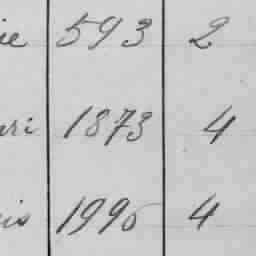 ie 593 2
ari 1873 4
is 1996 4